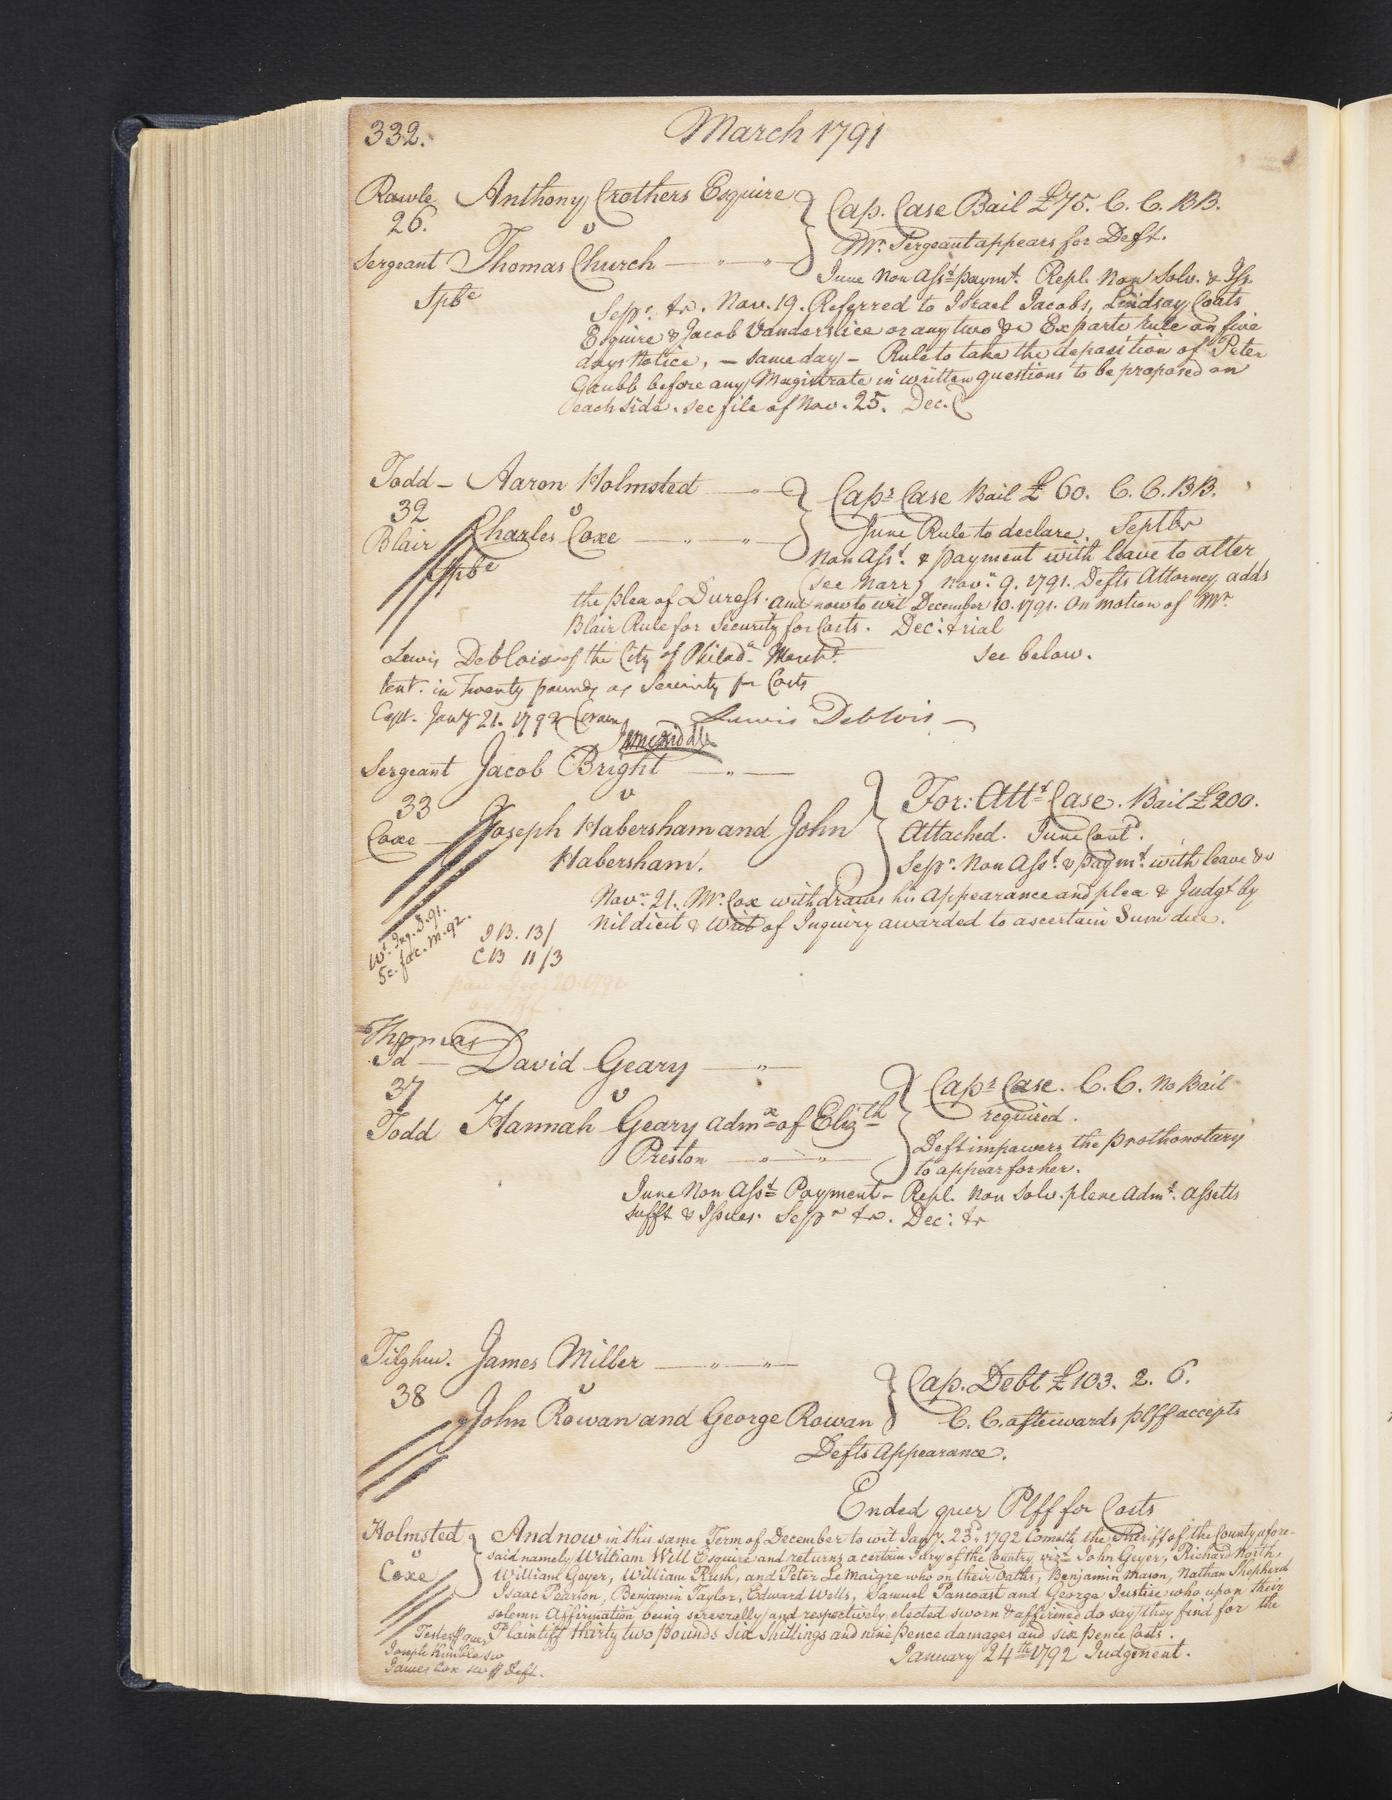 332. March 1791
Rawle Anthony Crothers Esquire Cap. Case Bail £75. C. C. BB.
26. v Mr. Sergeant appears for Deft.
Sergeant Thomas Church June Non Asst. paymt. Repl. Non Solv. & Iss.
Spbe Sepr. tr. Nov. 19. Referred to Israel Jacobs, Lindsay Coats
Esquire & Jacob Vanderslice or any two &c Ex parte Rule on five
days Notice, – same day – Rule to take the deposition of Peter
Gaubb before any Magistrate in written questions to be proposed on
each side. see file of Nov. 25. Dec. C
Todd – Aaron Holmsted Caps. Case Bail £60. C. C. BB.
32 v June Rule to declare. Septbr
Blair Charles Coxe Non Asst. & Payment with leave to alter
Spbe (see Narr) Novr. 9. 1791. Defts Attorney adds
the plea of Duress. and now to wit December 10. 1791. On motion of Mr.
Blair Rule for Security for Costs. Dec: trial
Lewis Deblois of the City of Philada. Mercht. see below.
tent. in Twenty pounds as Security for Costs
Capt. Jany 21. 1792 Coram Lewis Deblois
Sergeant Jacob Bright For: Att. Case. Bail £200.
33 v
Coxe Joseph Habersham and John Attached. June Cont.
Habersham. Sepr. Non Asst. & paymt. with leave &c
Novr. 21. Mr. Cox withdraws his Appearance and plea & Judgt by
Nil dicit & Writ of Inquiry awarded to ascertain Sum due.
Wt. Inq. D. 91.
Sc. fac. M. 92.
JB. 13/
CB 11/3
paid Dec. 20. 1792
Thomas
Id – David Geary Caps. Case. C. C. No Bail
37 v required.
Todd Hannah Geary admx. of Elizth Deft impowers the prothonotary
Preston to appear for her.
June Non Asst. Payment – Repl. Non Solv. plene admt. assetts
sufft & Issues. Sepr tr. Dec: tr
Tilghm. James Miller Cap. Debt £103. 2. 6.
38 v
John Rowan and George Rowan C. C. afterwards plff accepts
Defts Appearance.
Ended quer Plff for Costs
Holmsted And now in this same Term of December to wit Jany. 23d. 1792 Cometh the Sheriff of the County afore-
v said namely William Will Esquire and returns a certain Jury of the Country vizt John Geyer, Richard North,
Coxe William Geyer, William Rush, and Peter Le Maigre who on their Oaths, Benjamin Mason, Nathan Shepherd
Isaac Pearson, Benjamin Taylor, Edward Wells, Samuel Pancoast and George Justice who upon their
solemn Affirmation being severally and respectively elected sworn & affirmed do say they find for the
Plaintiff thirty two pounds six shillings and nine pence damages and six pence Costs.
January 24th 1792 Judgment.
Testes p quer
Joseph Kimble sw
James Cox sw p Deft.